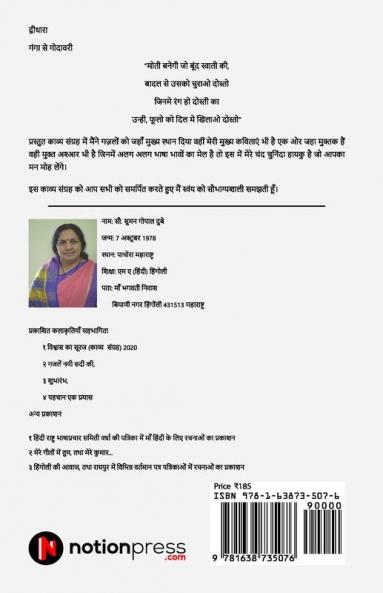 द्वीधारा
गंगा से गोदावरी
"मोती बनेगी जो बूंद स्वाती की,
बादल से उसको चुराओ दोस्तो
जिनमे रंग हो दोस्ती का
उन्हीं, फूलो को दिल मे खिलाओ दोस्तो"
प्रस्तुत काव्य संग्रह में मैंने गज़लों को जहाँ मुख्य स्थान दिया वहीं मेरी मुख्य कविताएं भी है एक ओर जहा मुक्तक हैं
वही मुक्त अश्आर भी है जिनमें अलग अलग भाषा भावों का मेल है तो इस में मेरे चंद चुनिंदा हायकु है जो आपका
मन मोह लेंगे।
इस काव्य संग्रह को आप सभी को समर्पित करते हुए मैं स्वंय को सौभाग्यशाली समझती हूँ।
नाम: सौ. सुमन गोपाल दुबे
जन्म: 7 अक्टूबर 1978
स्थान: पाचोरा महाराष्ट्र
शिक्षा: एम ए (हिंदी) हिंगोली
पता: माँ भगवती निवास
बियाणी नगर हिंगोंली 431513 महाराष्ट्र
प्रकाशित कलाकृतियाँ सहभागिता
१ विश्वास का सूरज (काव्य संग्रह) 2020
२ गजलें नयी सदी की,
३ शुभारंभ,
४ पहचान एक प्रयास
अन्य प्रकाशन
१ हिंदी राष्ट्र भाषाप्रचार समिती वर्धा की पत्रिका में माँ हिंदी के लिए रचनाओं का प्रकाशन
२ मेरे गीतों में तुम, तथा मेरे कुमार...
३ हिंगोली की आवाज, तथा रायपुर में विभिन्न वर्तमान पत्र पत्रिकाओं में रचनाओं का प्रकाशन
Price ₹185
ISBN 978-1-63873-507-6
90000
9 781638 735076
notionpress
.com